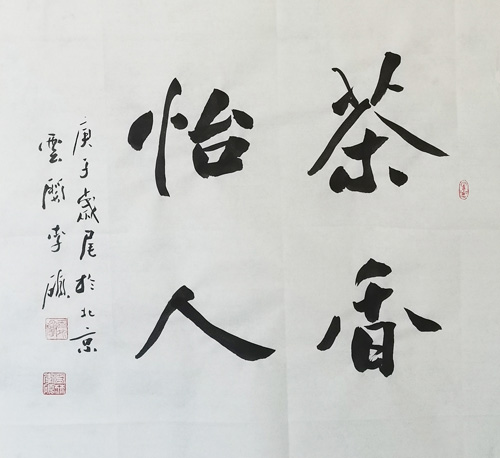 茶香
怡人
庚子歲尾於北京
雲閣李碩